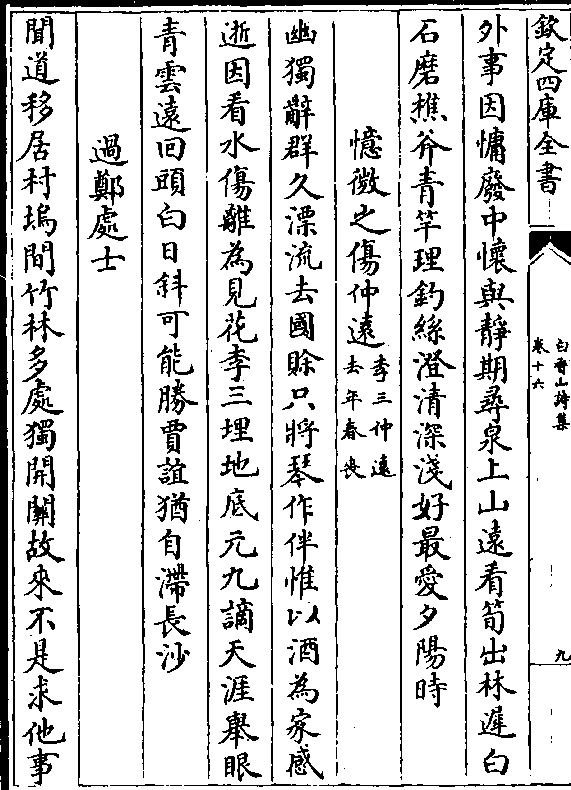 欽定四庫全書
白香山詩集
卷十六
九
外事因慵廢中懷與靜期尋泉上山遠看筍出林遲白
石磨樵斧青竿理釣絲澄清深淺好最愛夕陽時
憶微之傷仲遠李三仲遠去年春喪
幽獨辭群久漂流去國賒只將琴作伴惟以酒為家感
逝因看水傷離為見花李三埋地底元九謫天涯舉眼
青雲遠回頭白日斜可能勝賈誼猶自滯長沙
過鄭處士
聞道移居村塢間竹林多處獨開關故來不是求他事